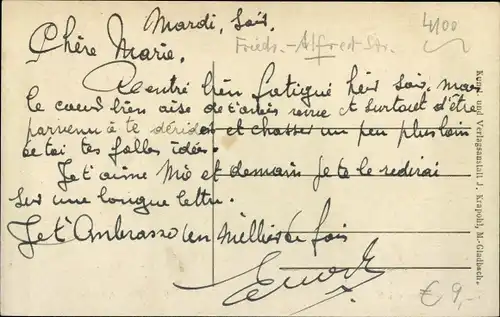 Mardi, Soir.
4100
Frieds.-Alfred Str.
Chère Marie,
Rentré bien fatigué hier soir, mais
le cœur bien aise de t'avoir revue et surtout d'être
parvenu à te dérider et chasser un peu plus loin
de toi tes folles idées.
Je t'aime Mie et demain je te le redirai
sur une longue lettre.
Je t'embrasse un millier de fois
€ 9,-
Kunst- und Verlagsanstalt J. Krapohl, M.-Gladbach.